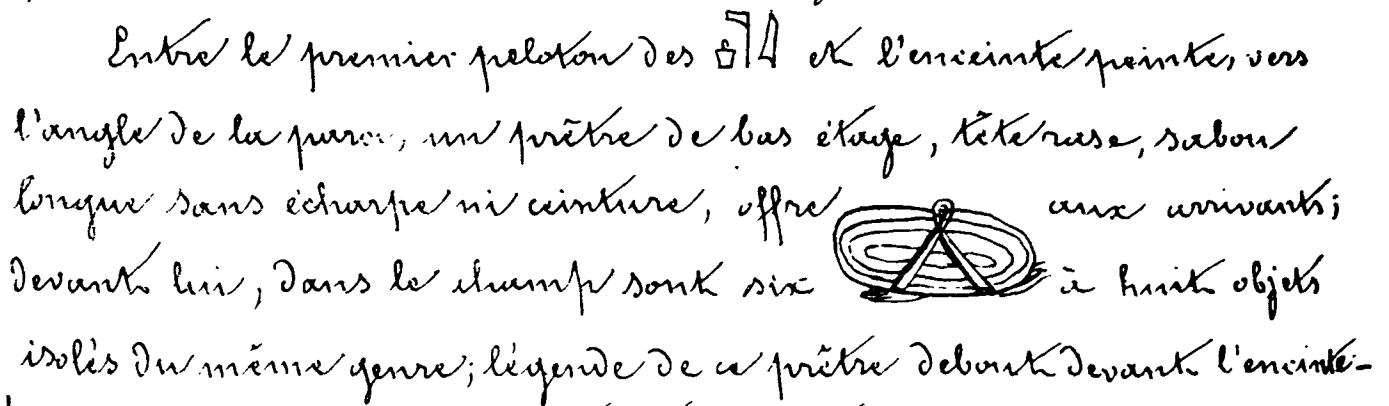 Entre le premier peloton des et l'enceinte peinte, vers
l'angle de la paroi, un prêtre de bas étage, tête rase, sabou
longue sans écharpe ni ceinture, offre aux arrivants;
devant lui, dans le champ sont six à huit objets
isolés du même genre; légende de ce prêtre debout devant l'enceinte-